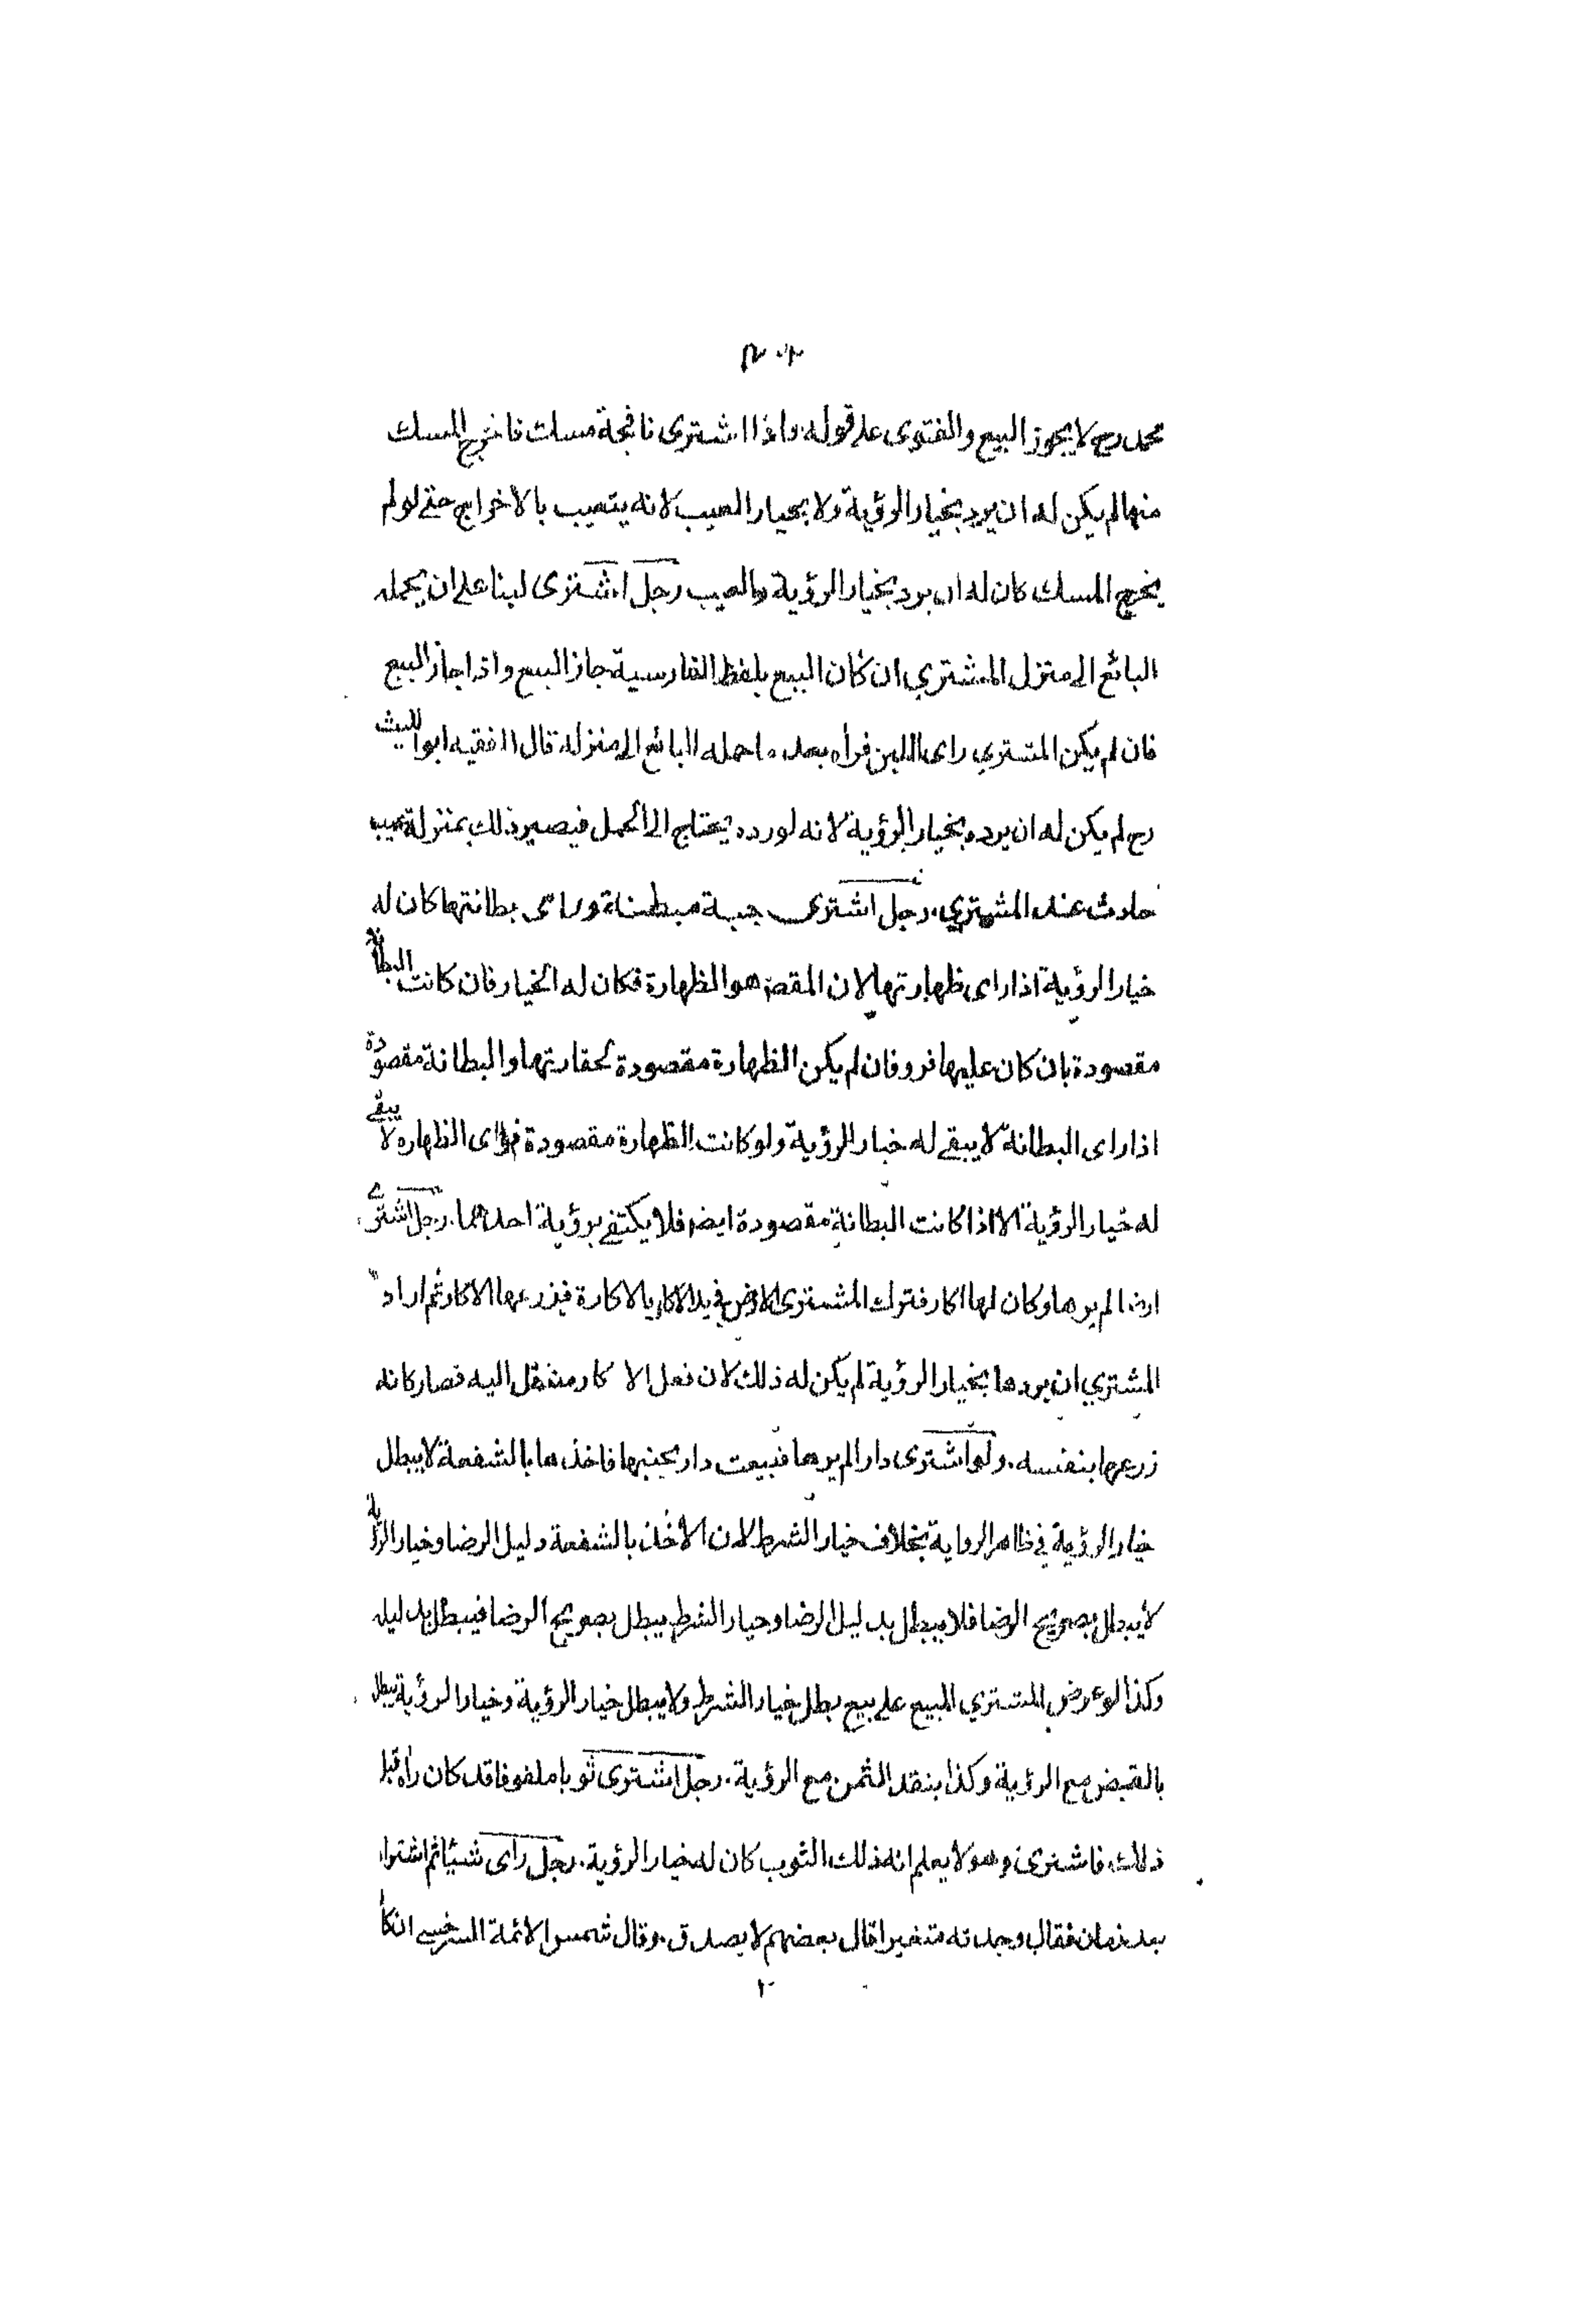 محمد رح لا يجوز البيع والفتوى على قوله واذا اشترى نافجة مسك فاخرج المسك
منها لم يكن له ان يرد بخيار الرؤية ولا بخيار العيب لانه يتعيب بالاخراج حتى لو لم
يخرج المسك كان له ان يرد بخيار الرؤية والعيب رجل اشترى لبنا على ان يحمله
البائع الى منزل المشتري ان كان البيع بلفظ الفارسية جاز البيع واذا جاز البيع
فان لم يكن المشتري راى اللبن فرأه بعد ما حمله البائع الى منزله قال الفقيه ابو الليث
رح لم يكن له ان يرده بخيار الرؤية لانه لو رده يحتاج الى الحمل فيصير ذلك بمنزلة عيب
حادث عند المشتري. رجل اشترى جبة مبطنة وراى بطانتها كان له
خيار الرؤية اذا راى ظهارتها لان المقصد هو الظهارة فكان له الخيار فان كانت البطانة
مقصودة بان كان عليها فرو فان لم يكن الظهارة مقصودة لحقارتها والبطانة مقصودة
اذا راى البطانة لا يبقى له خيار الرؤية ولو كانت الظهارة مقصودة فراى الظهاره لا يبقى
له خيار الرؤية الا اذا كانت البطانة مقصودة ايضا فلا يكتفى برؤية احدهما. رجل اشترى
ارضا لم يرها وكان لها اكار فترك المشترى الارض في يد الاكار بالاكارة فيزرعها الاكار ثم اراد
المشتري ان يردها بخيار الرؤية لم يكن له ذلك لان فعل الا كار منتقل اليه فصار كانه
زرعها بنفسه. ولو اشترى دارا لم يرها فبيعت دار بجنبها فاخذها بالشفعة لا يبطل
خيار الرؤية في ظاهر الرواية بخلاف خيار الشرط لان الاخذ بالشفعة دليل الرضا وخيار الرؤية
لا يبطل بصريح الرضا فلا يبطل بدليل الرضا وخيار الشرط يبطل بصريح الرضا فيبطل بدليله
وكذا لو عرض المشتري المبيع على بيع بطل خيار الشرط ولا يبطل خيار الرؤية وخيار الرؤية يبطل
بالقبض مع الرؤية وكذا بنقد الثمن مع الرؤية. رجل اشترى ثوبا ملفوفا قد كان راه قبل
ذلك فاشترى وهو لا يعلم انه ذلك الثوب كان له خيار الرؤية. رجل راى شيئا ثم اشتراه
بعد زمان فقال وجدته متغيرا قال بعضهم لا يصدق. وقال شمس الائمة السرخسي ان كا